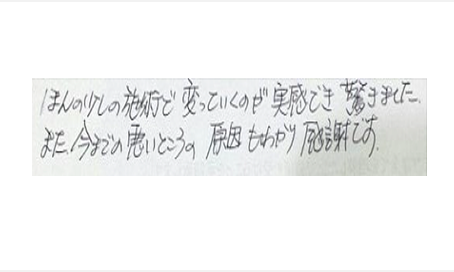 ほんの少しの施術で変っていくのが実感でき驚きました。
また、今までの悪いところの原因もわかり感謝です。